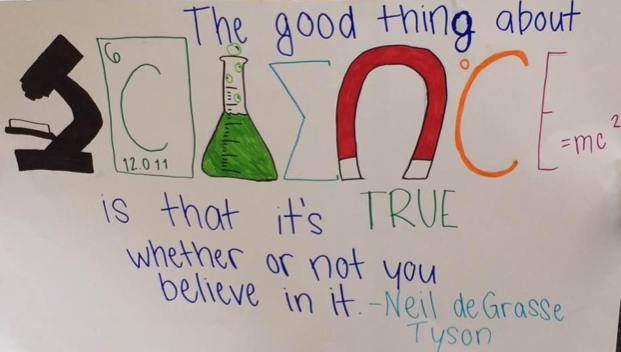 The good thing about
6 C 12.011 Σ °C E=mc²
is that it's TRUE
whether or not you
believe in it. -Neil deGrasse
Tyson